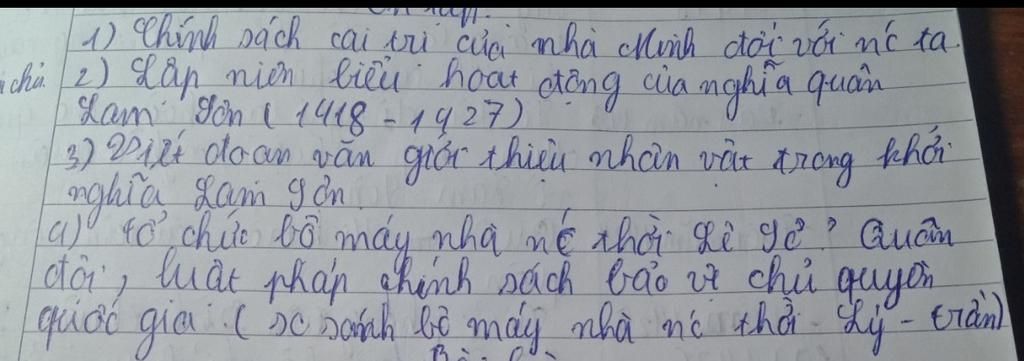 1) Chính sách cai trị của nhà Minh đối với nc ta.
chú. 2) Lập niên biểu hoạt động của nghĩa quân
Lam Sơn (1418 - 1427)
3) Viết đoạn văn giới thiệu nhân vật trong khởi
nghĩa Lam Sơn
4) tổ chức bộ máy nhà nc thời Lê Sơ? Quân
đội, luật pháp chính sách bảo vệ chủ quyền
quốc gia. (so sánh bộ máy nhà nc thời Lý - trần)